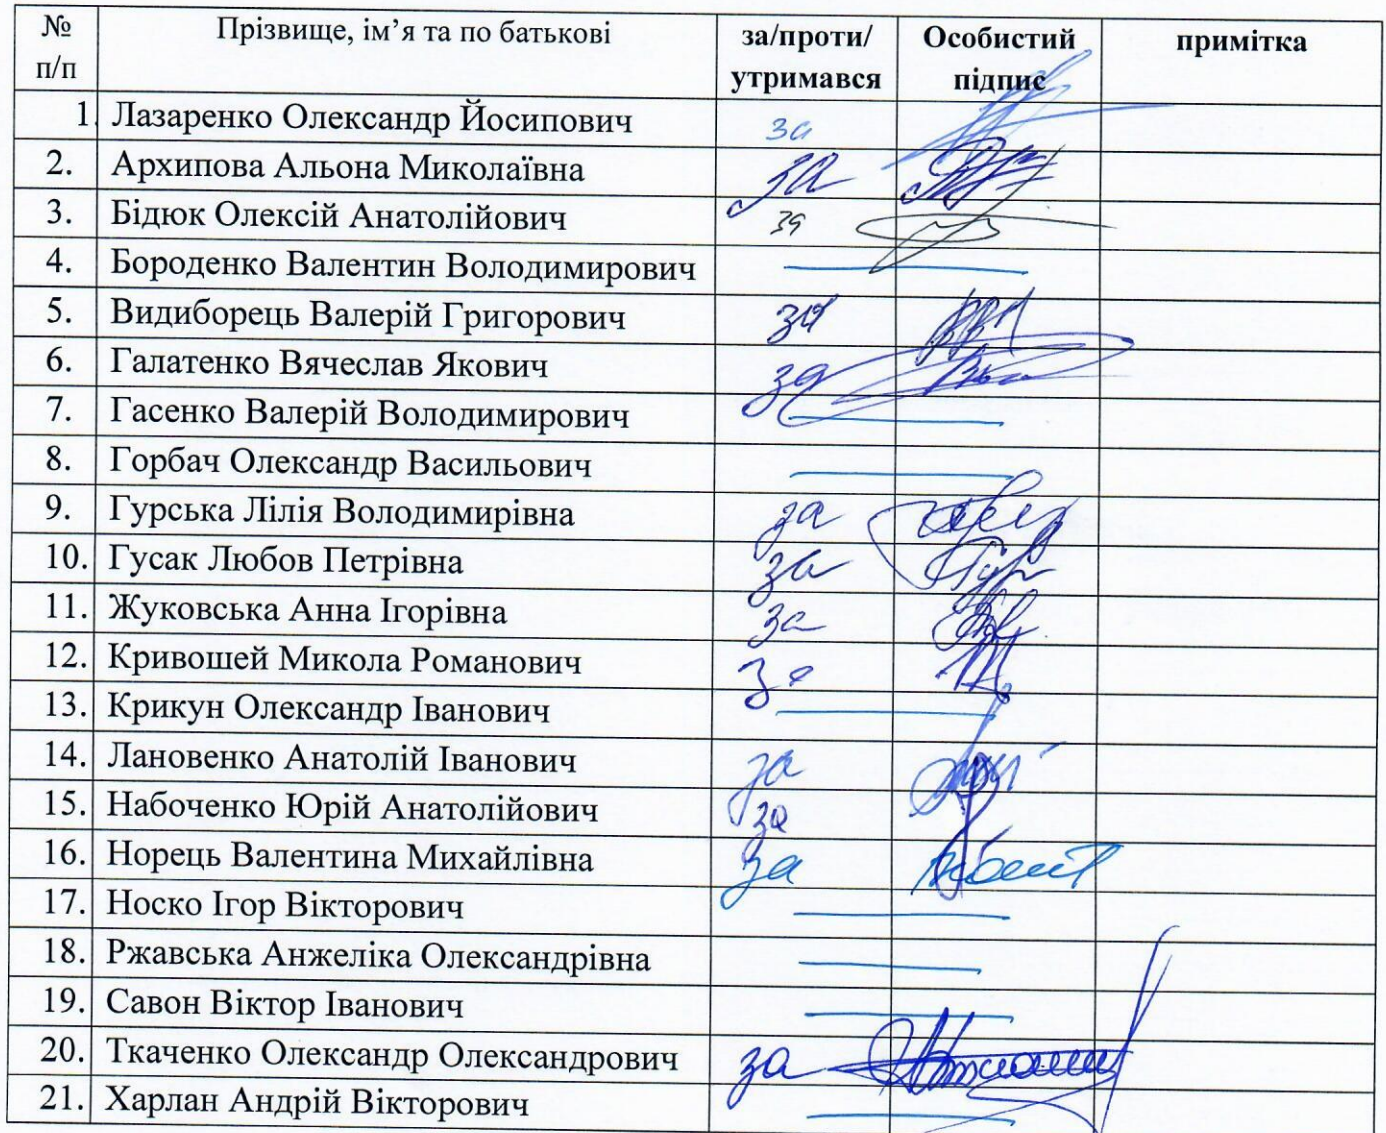 № п/п Прізвище, ім’я та по батькові за/проти/ утримався Особистий підпис примітка
1. Лазаренко Олександр Йосипович за
2. Архипова Альона Миколаївна за
3. Бідюк Олексій Анатолійович за
4. Бороденко Валентин Володимирович
5. Видиборець Валерій Григорович за
6. Галатенко Вячеслав Якович за
7. Гасенко Валерій Володимирович
8. Горбач Олександр Васильович
9. Гурська Лілія Володимирівна за
10. Гусак Любов Петрівна за
11. Жуковська Анна Ігорівна за
12. Кривошей Микола Романович за
13. Крикун Олександр Іванович
14. Лановенко Анатолій Іванович за
15. Набоченко Юрій Анатолійович за
16. Норець Валентина Михайлівна за
17. Носко Ігор Вікторович
18. Ржавська Анжеліка Олександрівна
19. Савон Віктор Іванович
20. Ткаченко Олександр Олександрович за
21. Харлан Андрій Вікторович